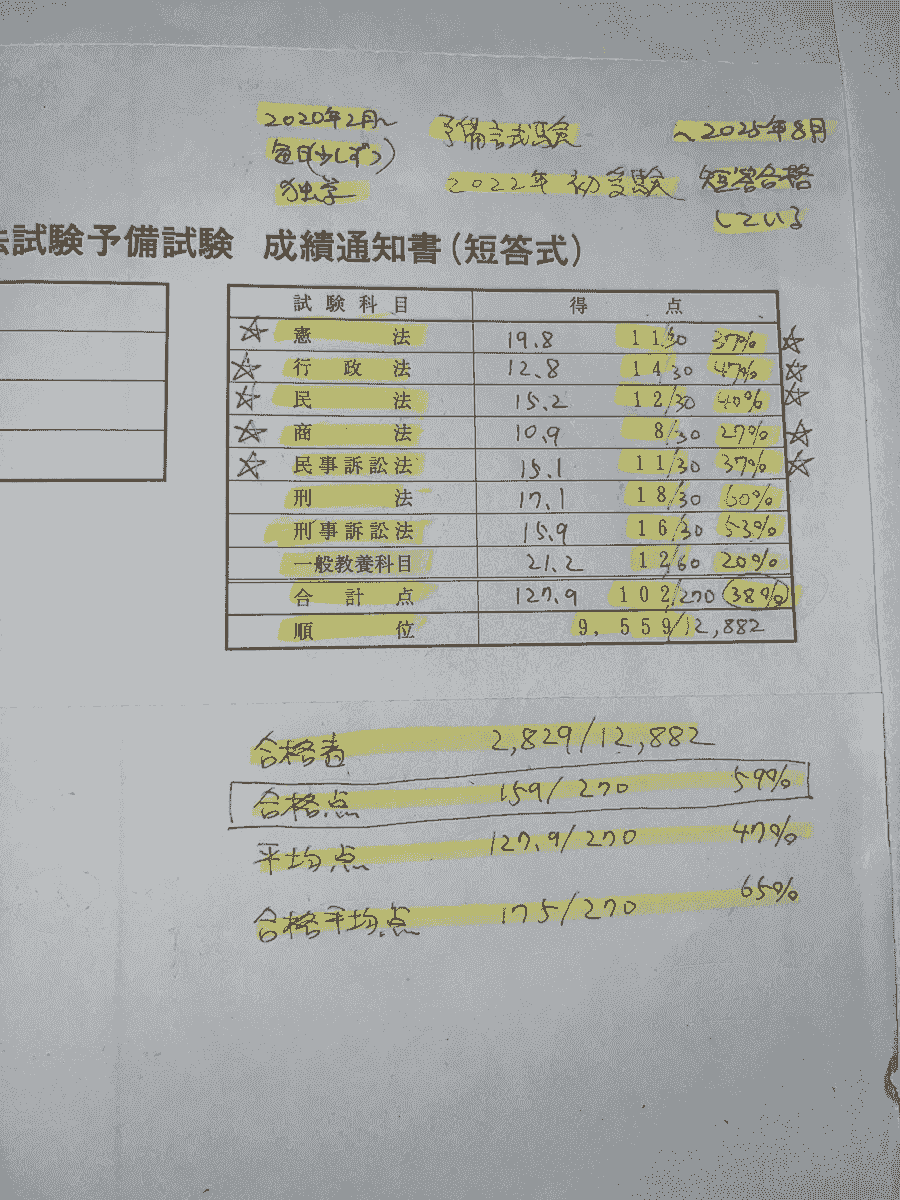 2020年2月～ 予備試験 ～2025年8月
毎日(少しずつ)
独学 2022年 初受験 短答合格
している
試験予備試験 成績通知書(短答式)
試験科目 得点
☆ 憲法 19.8 11/30 37% ☆
☆ 行政法 12.8 14/30 47% ☆
☆ 民法 15.2 12/30 40% ☆
☆ 商法 10.9 8/30 27% ☆
☆ 民事訴訟法 15.1 11/30 37% ☆
刑法 17.1 18/30 60%
刑事訴訟法 15.9 16/30 53%
一般教養科目 21.2 12/60 20%
合計点 127.9 102/270 38%
順位 9,559/12,882
合格者 2,829/12,882
合格点 159/270 59%
平均点 127.9/270 47%
合格平均点 175/270 65%